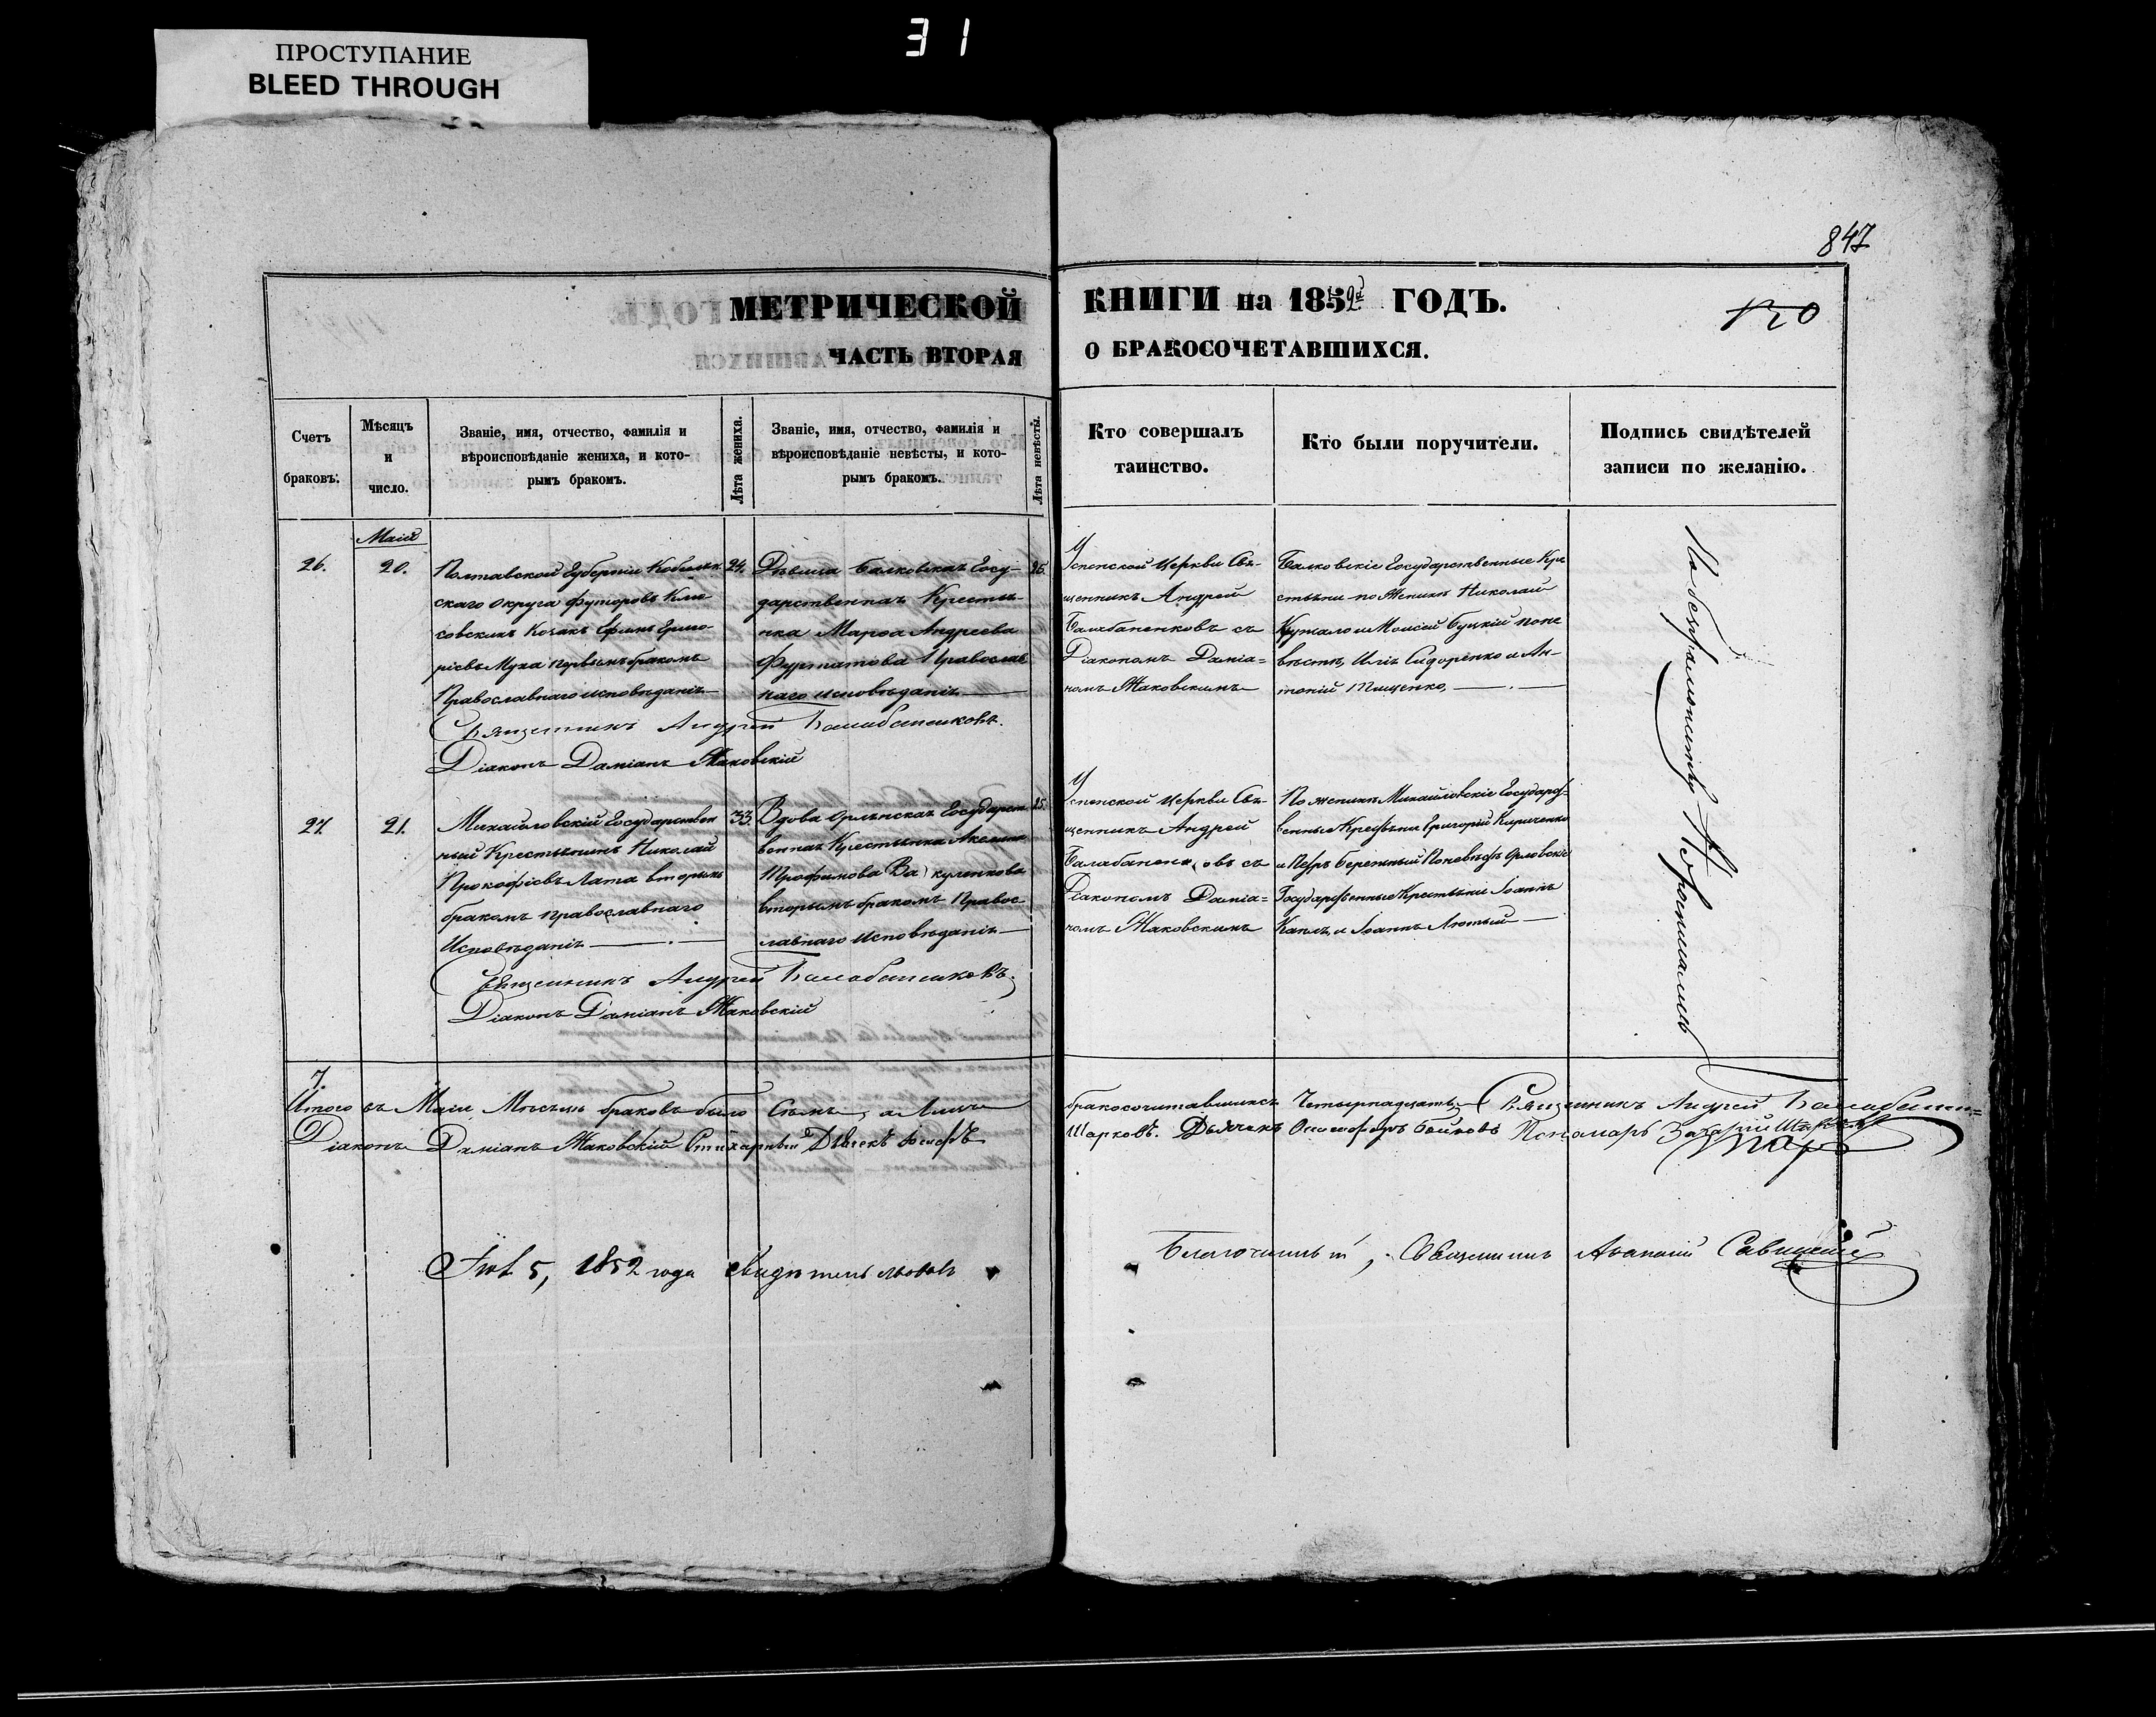 31
ПРОСТУПАНИЕ
BLEED THROUGH
847
МЕТРИЧЕСКОЙ КНИГИ на 1852й ГОДЪ.
120
ЧАСТЬ ВТОРАЯ О БРАКОСОЧЕТАВШИХСЯ.
Счетъ браковъ.
Мѣсяцъ и число.
Званіе, имя, отчество, фамилія и
вѣроисповѣданіе жениха, и кото-
рымъ бракомъ.
Лѣта жениха.
Званіе, имя, отчество, фамилія и
вѣроисповѣданіе невѣсты, и кото-
рымъ бракомъ.
Лѣта невѣсты.
Кто совершалъ
таинство.
Кто были поручители.
Подпись свидѣтелей
записи по желанію.
Маій
26.
20.
Полтавской Губерніи Кобеляк
скаго округа Футоровъ
Козакъ Ефимъ Григо-
рієвъ Муха первымъ бракомъ
Православнаго исповѣданія
24.
Дѣвица Балковская Госу-
дарственная Крестья-
нка Марѳа Андреева
Православ
наго исповѣданія
25.
Успенской Церкви Свя-
щенникъ Андрей
Балабаненковъ съ
Діакономъ Даміа-
номъ Жаковскимъ
Балковскіе Государственные Кре
стьяни по Женихѣ Николай
и Моисей Буцкій поне
вѣстѣ, Илія Сидоренко и Ан-
тоній Тищенко,
Священникъ Андрей Балабаненковъ.
Діаконъ Даміанъ Жаковскій
27.
21.
Михайловскій Государствен
ный Крестьянинъ Николай
Прокофієвъ Лата вторымъ
бракомъ православнаго
Исповѣданія
33.
Вдова Орлянская Государст
венная Крестьянка
Трофимова Вакуленкова
вторымъ бракомъ Правос-
лавнаго исповѣданія
25.
Успенской Церкви Свя-
щенникъ Андрей
Балабаненковъ съ
Діакономъ Даміа-
номъ Жаковскимъ
По женихѣ Михайловскіе Государст-
венные Крестьяни Григорій Кириченко
и Петръ Бережный Поневѣстѣ Орловскіе
Государственные Крестьяни Іоаннъ
и Іоаннъ Лютый
Священникъ Андрей Балабаненковъ.
Діаконъ Даміанъ Жаковскій
7.
Итого въ Маіи Мѣсяцѣ браковъ было Семь, а Лицъ бракосочитавшихся Четырнадцать. Священникъ Андрей Балабанен=
Діаконъ Даміанъ Жаковскій Стихарный Дьячекъ Іосифъ Шарковъ. Дьячекъ Бойковъ Пономарь Захарій
5, 1852 года Свидѣтельствовалъ Благочинный, Священникъ Аѳанасій Савицкій